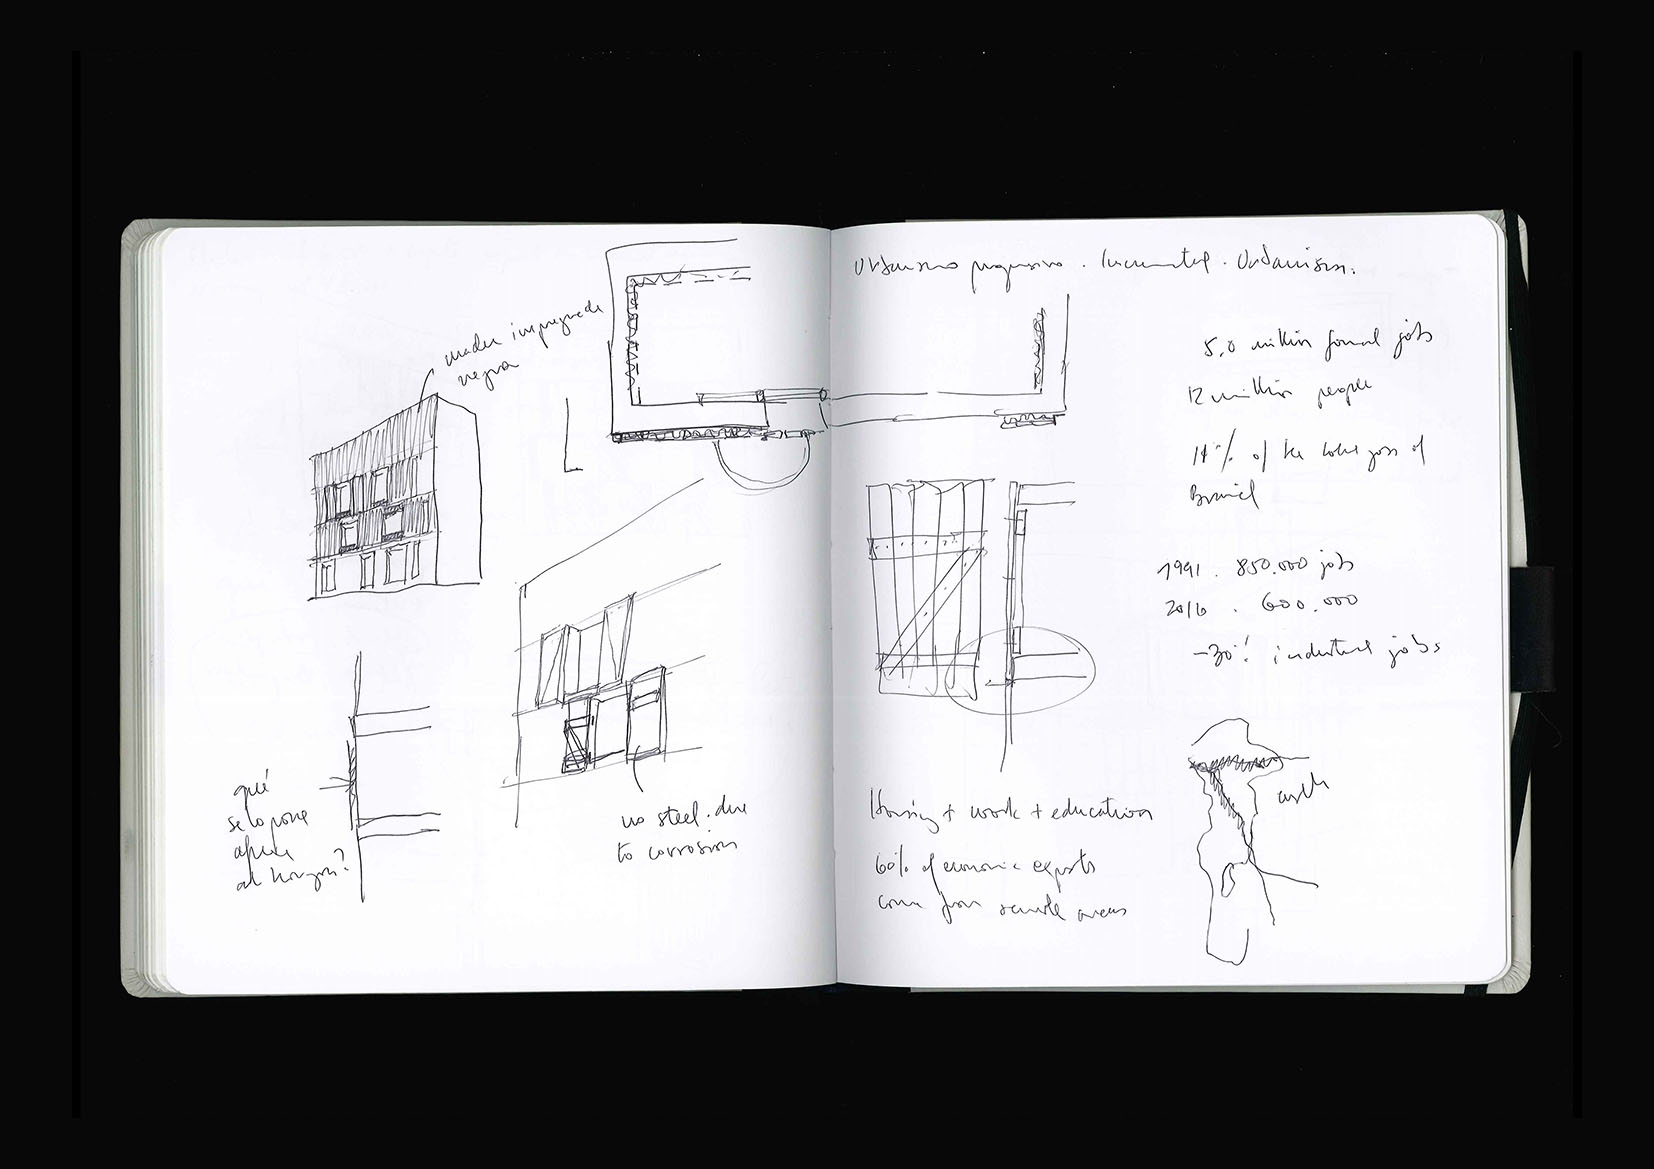 madera impregnada
negra
qué
se lo pone
afuera
al hormigón?
no steel. due
to corrosion
Urbanismo progresivo. Incremental. Urbanism.
5,0 million formal jobs
12 million people
11% of the total jobs of
Brazil
1991. 850.000 jobs
2016. 600.000
-30% industrial jobs
Housing + work + education
60% of economic exports
come from remote areas